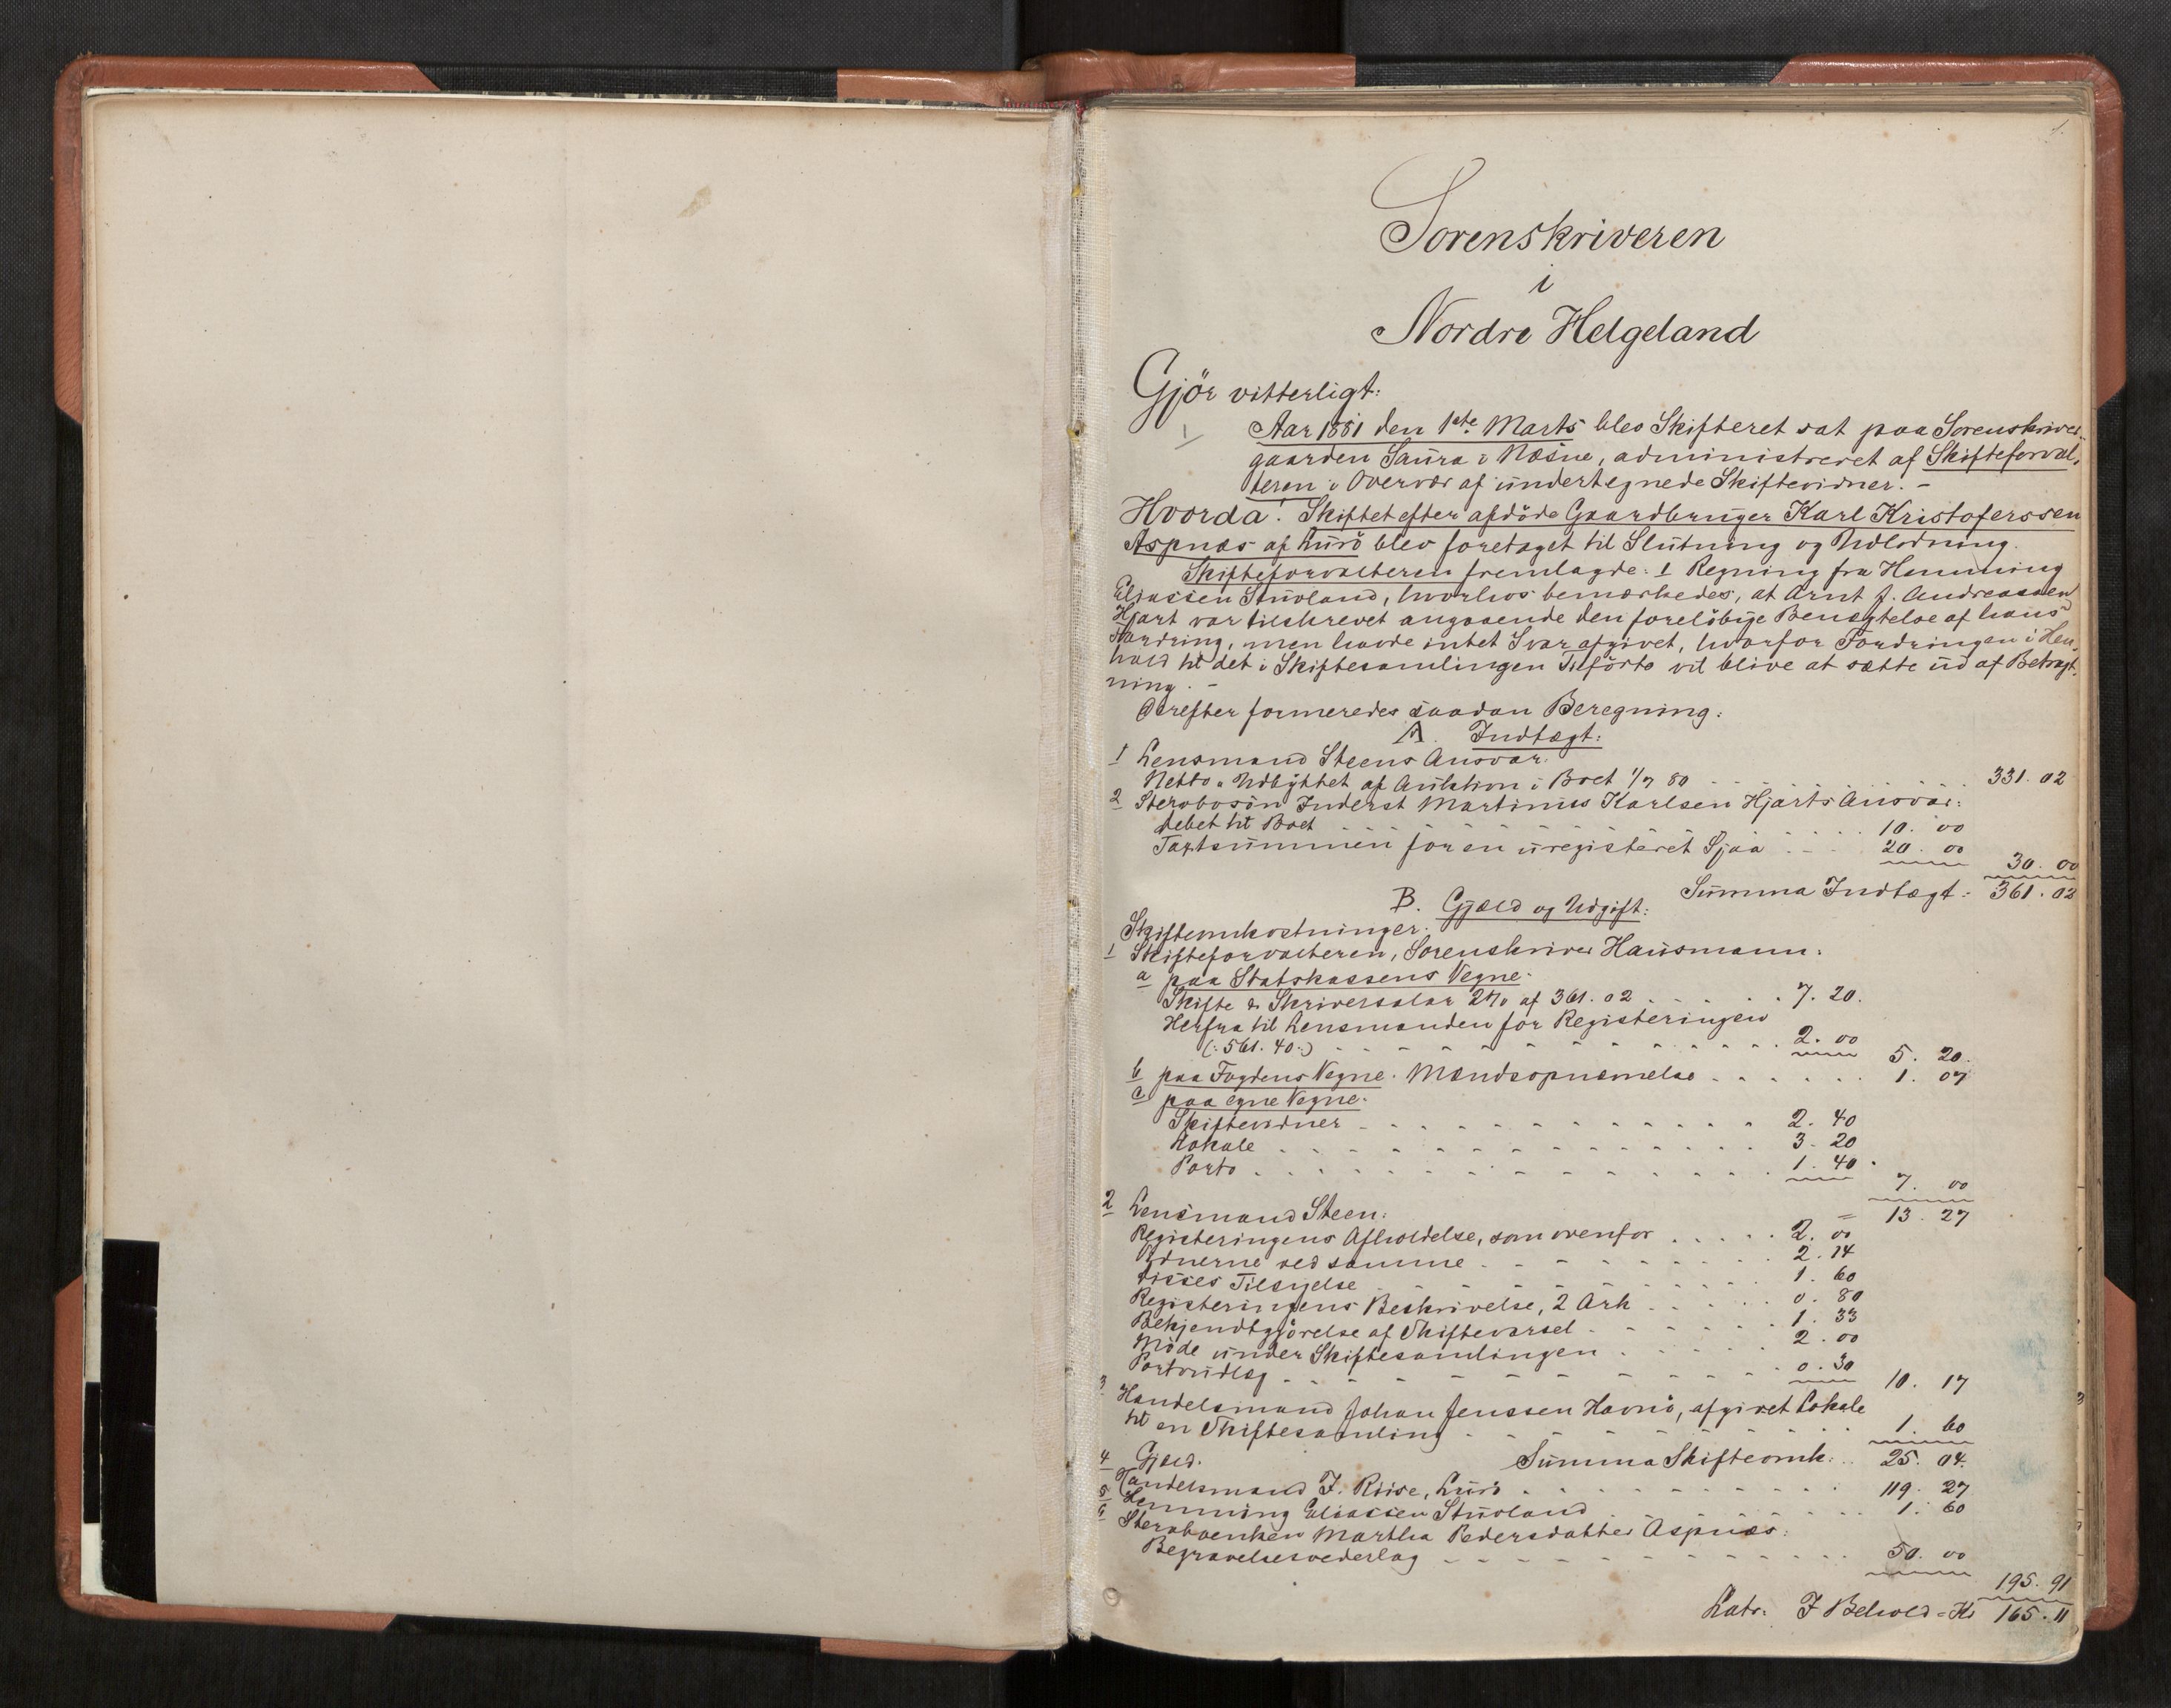 1.
Sorenskriveren
i
Nordre Helgeland
Gjör vitterligt:
1 Aar 1881 den 1ste Marts blev Skifteret sat paa Sorenskriver-
gaarden Saura i Næsne, administreret af Skifteforval-
teren i Overvær af undertegnede Skiftevidner. -
Hvorda: Skiftet efter afdöde Gaardbruger Karl Kristoferssen
Aspnæs af Lurö blev foretaget til Slutning og Udlodning.
Skifteforvalteren fremlagde: 1 Regning fra Henning
Eliassen Stuvland, hvorhos bemærkedes, at Arnt J. Andreassen
Hjart var tilskrevet angaaende den foreløbige Benegtelse af hans
Fordring, men havde intet Svar afgivet, hvorfor Fordringen i Hen-
hold til det i Skiftesamlingen Tilförte vil blive at sætte ud af Betragt-
ning. -
Derefter formeredes saadan Beregning:
A. Indtægt:
1 Lensmand Steens Ansvar:
Netto-Udbyttet af Auktion i Boet 1/7 80 331. 02
2 Stervbosön Inderst Martinus Karlsen Hjarts Ansvar:
Debet til Boet 10. 00
Taxtsummen for en uregisteret Sjaa 20. 00 30. 00
Summa Indtægt: 361. 02
B. Gjæld og Udgift:
Skifteomkostninger:
1 Skifteforvalteren, Sorenskriver Hausmann:
a paa Statskassens Vegne:
Skifte & Skriversalar 2% af 361. 02 7. 20.
Herfra til Lensmanden for Registeringen
(: 561. 40 :) 2. 00 5. 20.
b paa Fogdens Vegne. Mændsopnæmelse 1. 07
c paa egne Vegne:
Skiftevidner 2. 40
Lokale 3. 20
Porto 1. 40 7. 00
= 13. 27
2 Lensmand Steen:
Registeringens Afholdelse, som ovenfor 2. 00
Vidnerne ved samme 2. 14
disses Tilsigelse 1. 60
Registeringens Beskrivelse, 2 Ark 0. 80
Bekjendtgjörelse af Skiftevarsel 1. 33
Möde under Skiftesamlingen 2. 00
Portoudlæg 0. 30 10. 17
3 Handelsmand Johan Jenssen Havnö, afgivet Lokale
til en Skiftesamling 1. 60
Summa Skifteomk: 25. 04.
Gjæld.
4 Handelsmand J. Riise, Lurö 119. 27
5 Henning Eliassen Stuvland 1. 60
6 Stervboenken Martha Pedersdatter Aspnæs:
Begravelsesvederlag 50. 00
195. 91
Lats: I Behold = Kr 165. 11